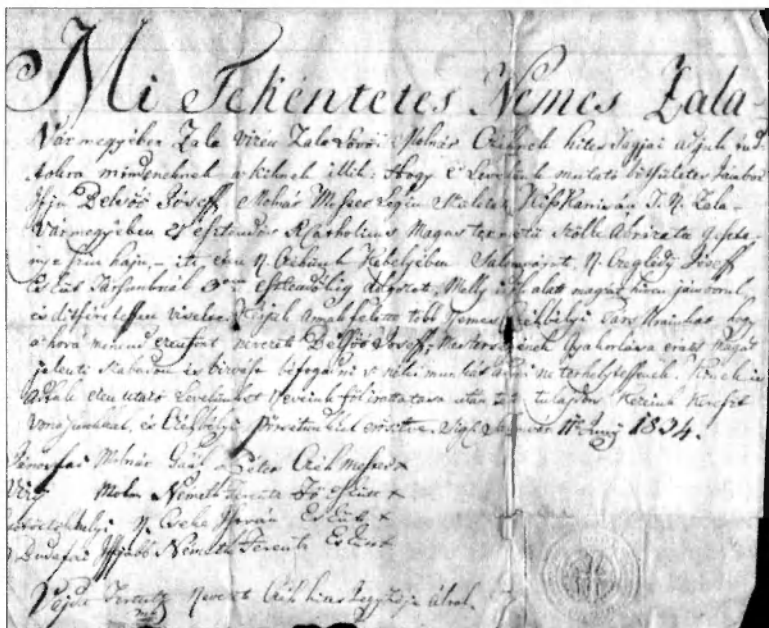 Mi Tekéntetes Nemes Zala-
Vármegyében Zala Vizén Zala Lövői Molnár Czéhnek hites Tagjai adjuk tud-
tokra mindeneknek a kiknek illik: Hogy E Levelünk mutató bötsületes Jámbor
Ifju Belső Jóseff Molnár Mester Legén Születet Kiss Kanisán T. N. Zala-
Vármegyében 21 esztendős R Katholicus Magas termetű Szölle Ábrázata geszte-
nye szin haju, – itt ezen N. Czéhünk Kebeljében N. Czeglédy Jóseff
Esküt Társunknál 3 esztendeig dolgozot, Melly idő alatt magát hiven jámborul,
és ditsiretessen viselte. Kérjük annak felette több Nemes Czéhbélyi Társ Urainkat hogy
a hová menend ezenfönt nevezett Belső Joseff, Mesterségének Gyakorlására ezent magát
jelenti Szabadon és bízvást béfogadni s néki munkát adni ne terheltessenek. Kinek is
adtuk ezen tetató Levelünket Neveink föl irattatása után tett tulajdon Kezeink Kereszt
vonásunkkal, és Czéhbélyi Pörsétünkkel erősitve. Sigl. 11ª Junij 1834.
Jánosfai Molnár Gaál Péter Czéh Mester x
Molnár Németh Ferentz Fő Esküt x
N. Cseke István Esküt x
Budafai Iffiabb Németh Ferentz Esküt x
Vajda Ferentz Nevezet Czéh hites Jegyzője által.
mp